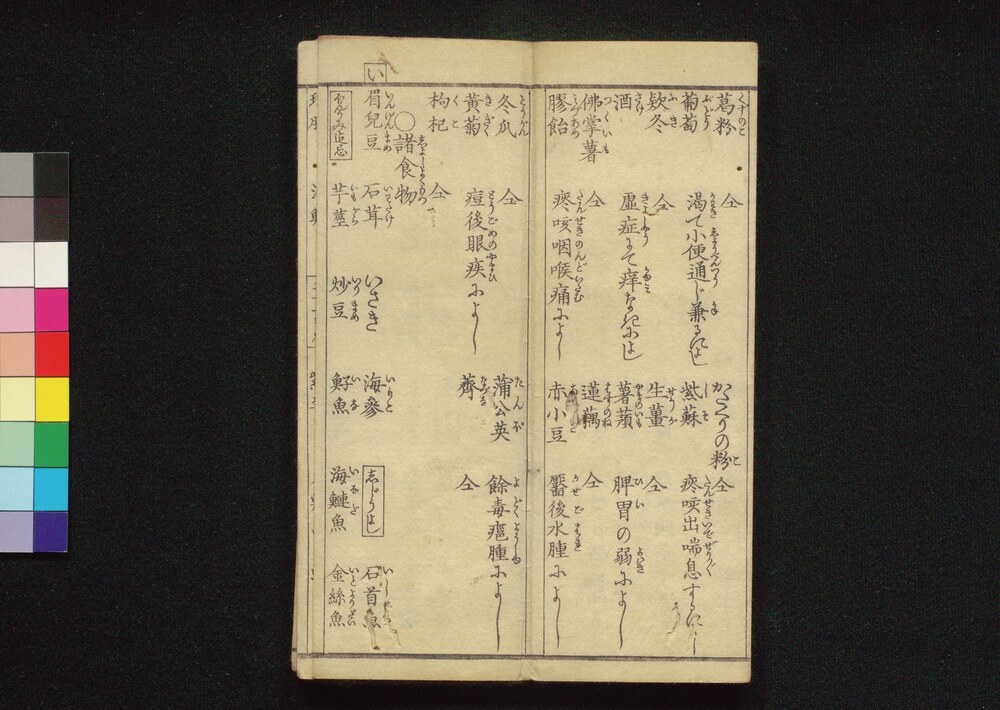 葛粉 仝
葡萄 渇て小便通じ兼るによし
欵冬 仝
酒 虚症にて痒みなきによし
佛掌薯 仝
膠飴 痰咳咽喉痛によし
かたくりの粉 仝
紫蘇 痰咳出喘息するによし
生薑 仝
薯蕷 脾胃の弱によし
蓮藕 仝
赤小豆 靨後水腫によし
冬瓜 仝
黄菊 痘後眼疾によし
枸杞 仝
蒲公英 餘毒瘫腫によし
薺 仝
○諸食物
い
眉兒豆 石茸 いさき 海參
志どうよし
石首魚
芋莖 炒豆 魣魚 海鰱魚 金絲魚